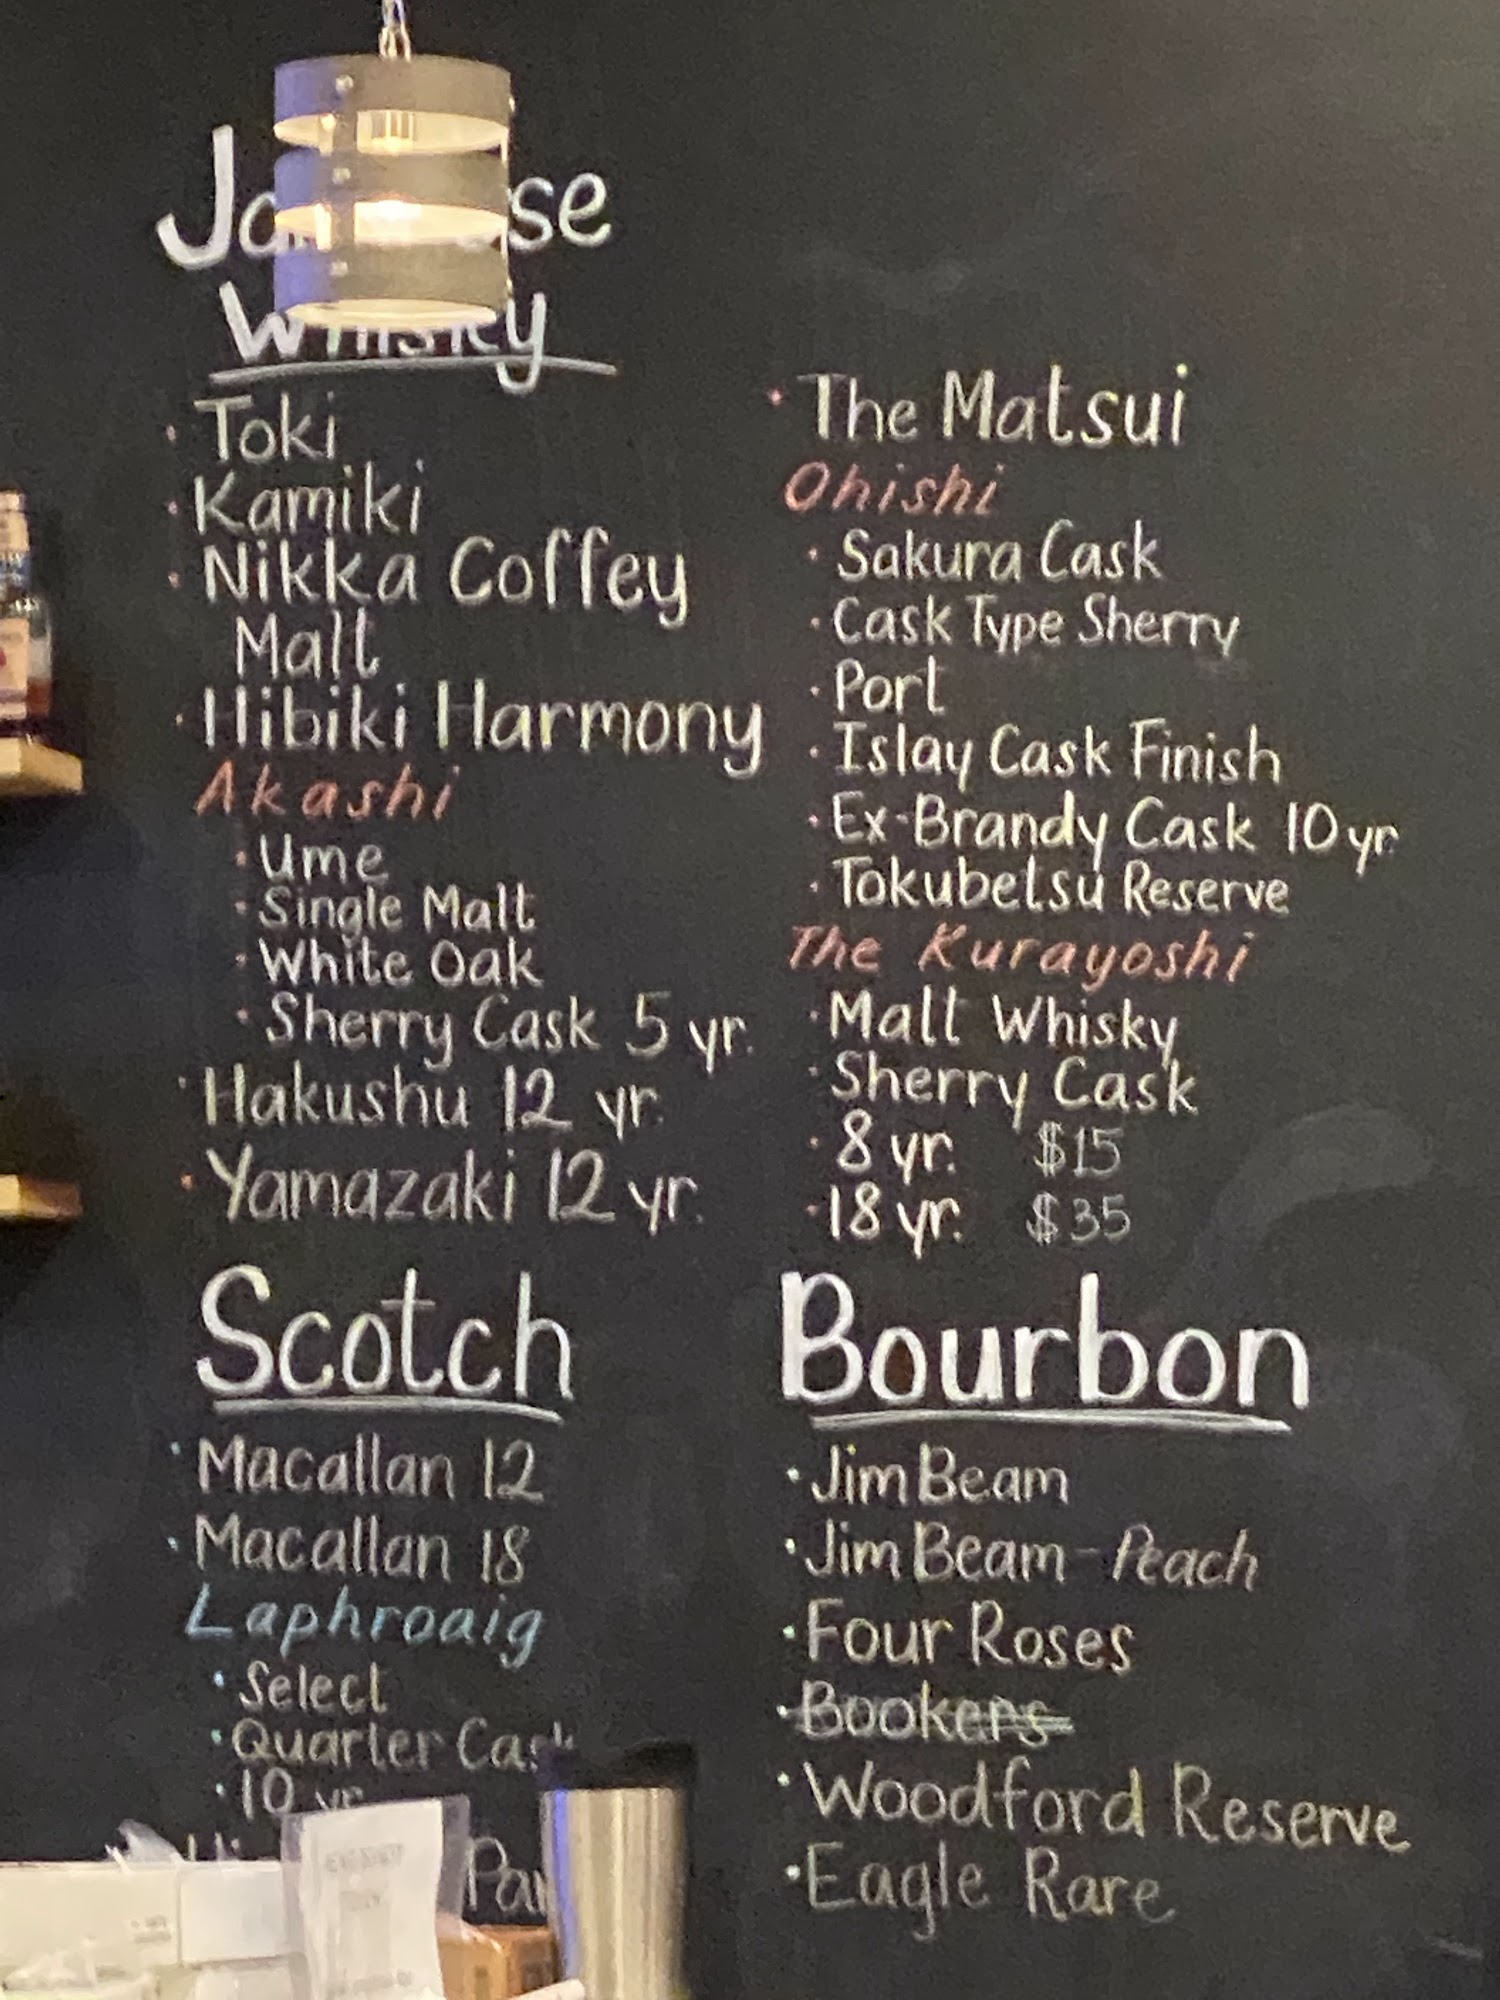 Japanese
Whisky
· Toki
· Kamiki
· Nikka Coffey
Malt
· Hibiki Harmony
Akashi
· Ume
· Single Malt
· White Oak
· Sherry Cask 5 yr.
· Hakushu 12 yr.
· Yamazaki 12 yr.
· The Matsui
Ohishi
· Sakura Cask
· Cask Type Sherry
· Port
· Islay Cask Finish
· Ex-Brandy Cask 10 yr
· Tokubetsu Reserve
The Kurayoshi
· Malt Whisky
· Sherry Cask
· 8 yr. $15
· 18 yr. $35
Scotch
· Macallan 12
· Macallan 18
Laphroaig
· Select
· Quarter Cask
· 10 yr
Bourbon
· Jim Beam
· Jim Beam - Peach
· Four Roses
· Bookers
· Woodford Reserve
· Eagle Rare